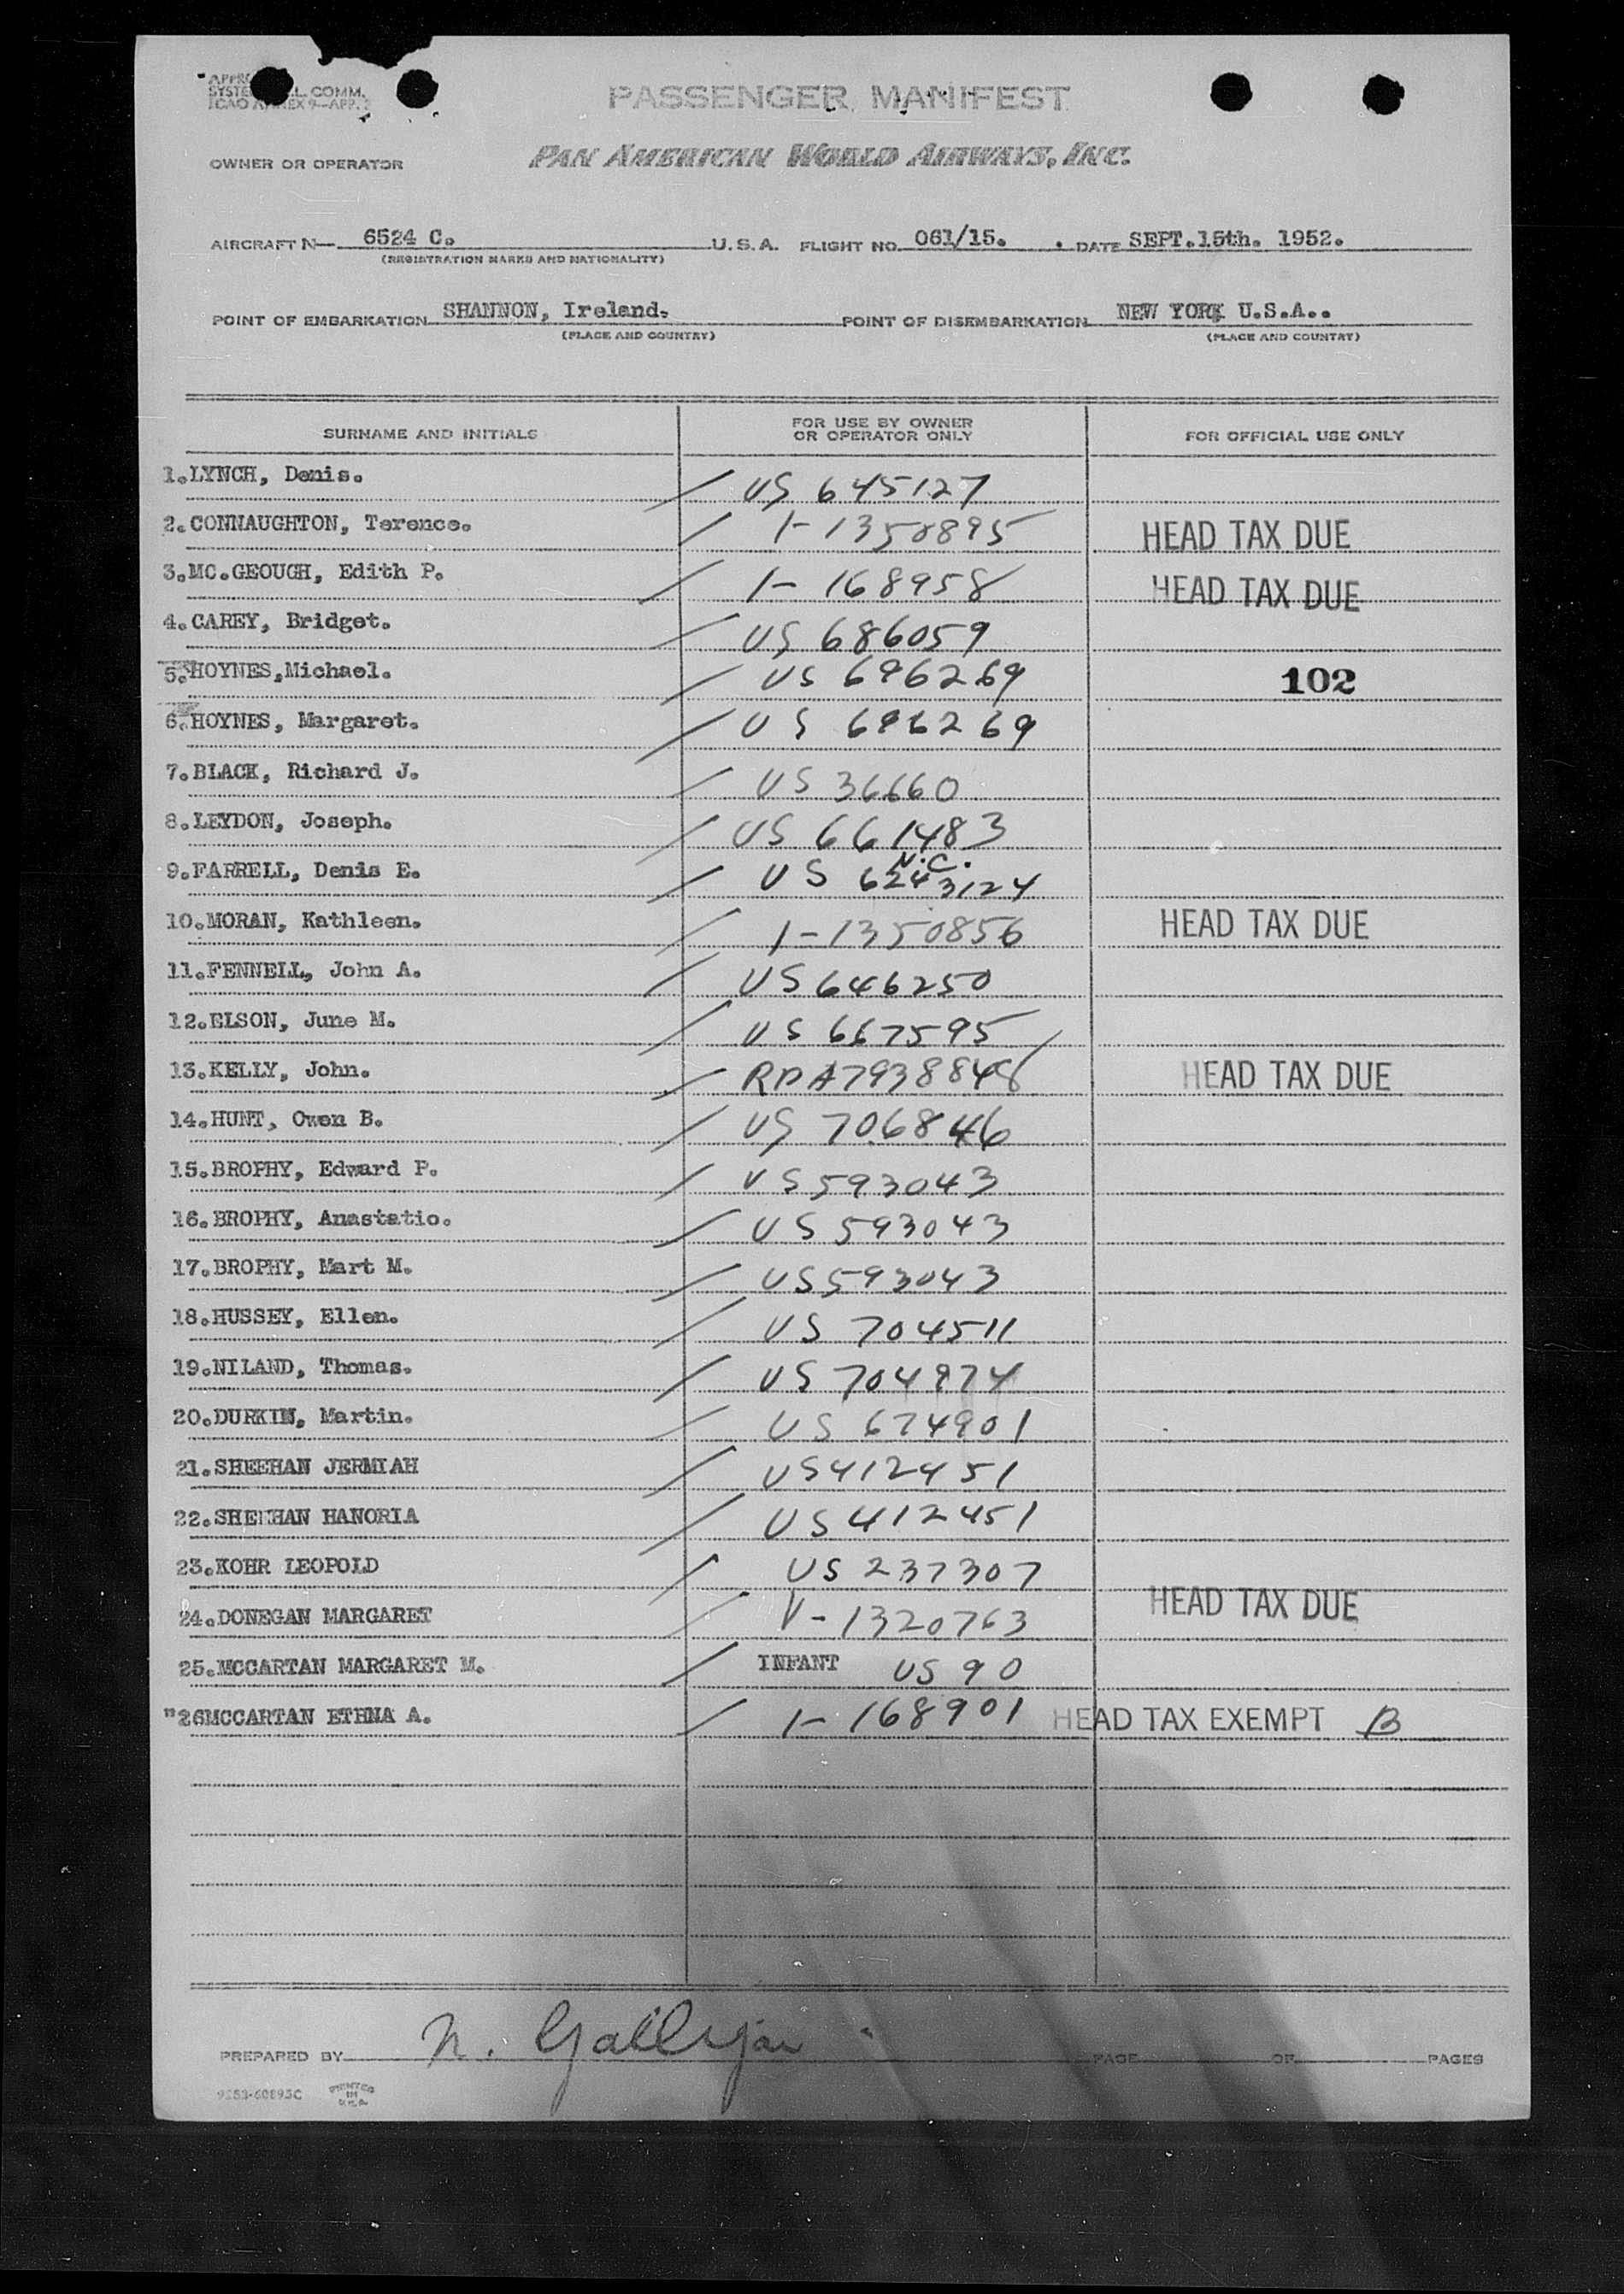 PASSENGER MANIFEST
L. COMM.
ICAO ANNEX 9—APP. 2
OWNER OR OPERATOR PAN AMERICAN WORLD AIRWAYS, INC.
AIRCRAFT N— 6524 C. U.S.A. FLIGHT NO. 061/15. DATE SEPT.15th. 1952.
(REGISTRATION MARKS AND NATIONALITY)
POINT OF EMBARKATION SHANNON, Ireland. POINT OF DISEMBARKATION NEW YORK U.S.A..
(PLACE AND COUNTRY) (PLACE AND COUNTRY)
SURNAME AND INITIALS FOR USE BY OWNER OR OPERATOR ONLY FOR OFFICIAL USE ONLY
1.LYNCH, Denis. US 645127
2.CONNAUGHTON, Terence. 1-1350895 HEAD TAX DUE
3.MC.GEOUGH, Edith P. 1-168958 HEAD TAX DUE
4.CAREY, Bridget. US 686059
5.HOYNES,Michael. US 696269 102
6.HOYNES, Margaret. US 696269
7.BLACK, Richard J. US 36660
8.LEYDON, Joseph. US 661483
N.C.
9.FARRELL, Denis E. US 624 3124
10.MORAN, Kathleen. 1-1350856 HEAD TAX DUE
11.FENNELL, John A. US 646250
12.ELSON, June M. US 667595
13.KELLY, John. RPA7938848 HEAD TAX DUE
14.HUNT, Owen B. US 706846
15.BROPHY, Edward P. US 593043
16.BROPHY, Anastatio. US 593043
17.BROPHY, Mart M. US 593043
18.HUSSEY, Ellen. US 704511
19.NILAND, Thomas. US 704974
20.DURKIN, Martin. US 674901
21.SHEEHAN JERMIAH US 412451
22.SHEEHAN HANORIA US 412451
23.KOHR LEOPOLD US 237307
24.DONEGAN MARGARET V-1320763 HEAD TAX DUE
25.MCCARTAN MARGARET M. INFANT US 90
"26MCCARTAN ETHNA A. 1-168901 HEAD TAX EXEMPT B
PREPARED BY N. Galligan PAGE OF PAGES
PRINTED IN U.S.A.